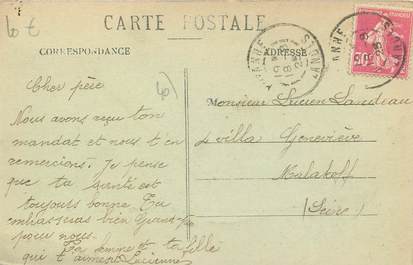 6 €
CARTE POSTALE
CORRESPONDANCE
ADRESSE
Cher père
Nous avons reçu ton
mandat et nous t'en
remercions. Je pense
que ta santé est
toujours bonne. Tu
embasseras bien
pour nous.
Ta femme et ta fille
qui t'aime Lucienne
Monsieur Lucien Landeau
villa Geneviève
Malakoff
(Seine)